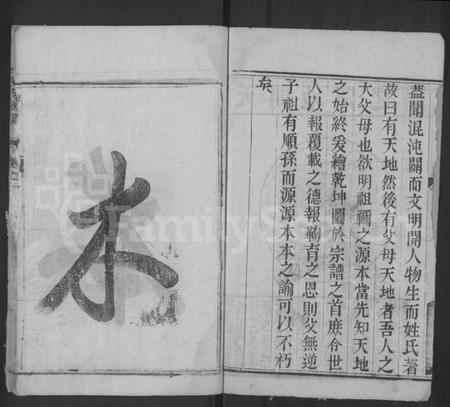 蓋聞混沌闢而文明開人物生而姓氏著
故曰有天地然後有父母天地者吾人之
大父母也欲明祖禰之源本當先知天地
之始終爰繪乾坤圖於宗譜之首庶令世
人以報覆載之德報鞠育之恩則父無逆
子祖有順孫而源源本本之諭可以不朽
矣
本
FamilySearch